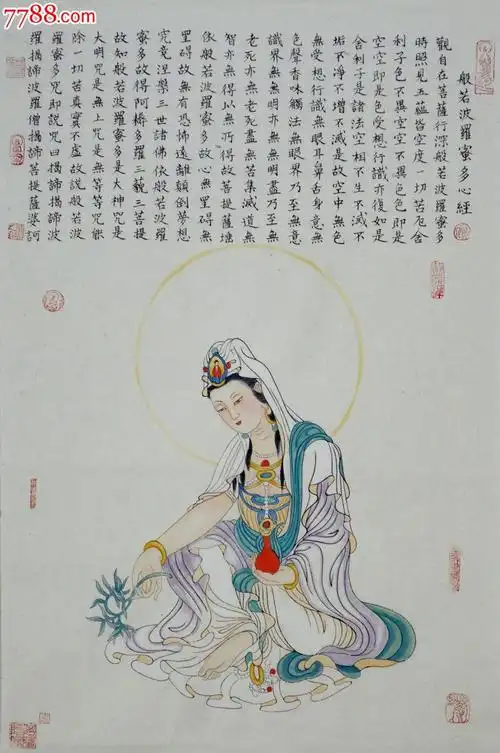 7788.com
般若波羅蜜多心經
觀自在菩薩行深般若波羅蜜多
時照見五蘊皆空度一切苦厄舍
利子色不異空空不異色色即是
空空即是色受想行識亦復如是
舍利子是諸法空相不生不滅不
垢不淨不增不減是故空中無色
無受想行識無眼耳鼻舌身意無
色聲香味觸法無眼界乃至無意
識界無無明亦無無明盡乃至無
老死亦無老死盡無苦集滅道無
智亦無得以無所得故菩提薩埵
依般若波羅蜜多故心無罣礙無
罣礙故無有恐怖遠離顛倒夢想
究竟涅槃三世諸佛依般若波羅
蜜多故得阿耨多羅三藐三菩提
故知般若波羅蜜多是大神咒是
大明咒是無上咒是無等等咒能
除一切苦真實不虛故說般若波
羅蜜多咒即說咒曰揭諦揭諦波
羅揭諦波羅僧揭諦菩提薩婆訶